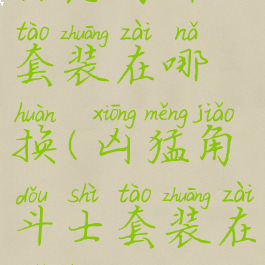 tào zhuāng zài nǎ
套装在哪
huàn xiōng měng jiǎo
换(凶猛角
dǒu shì tào zhuāng zài
斗士套装在